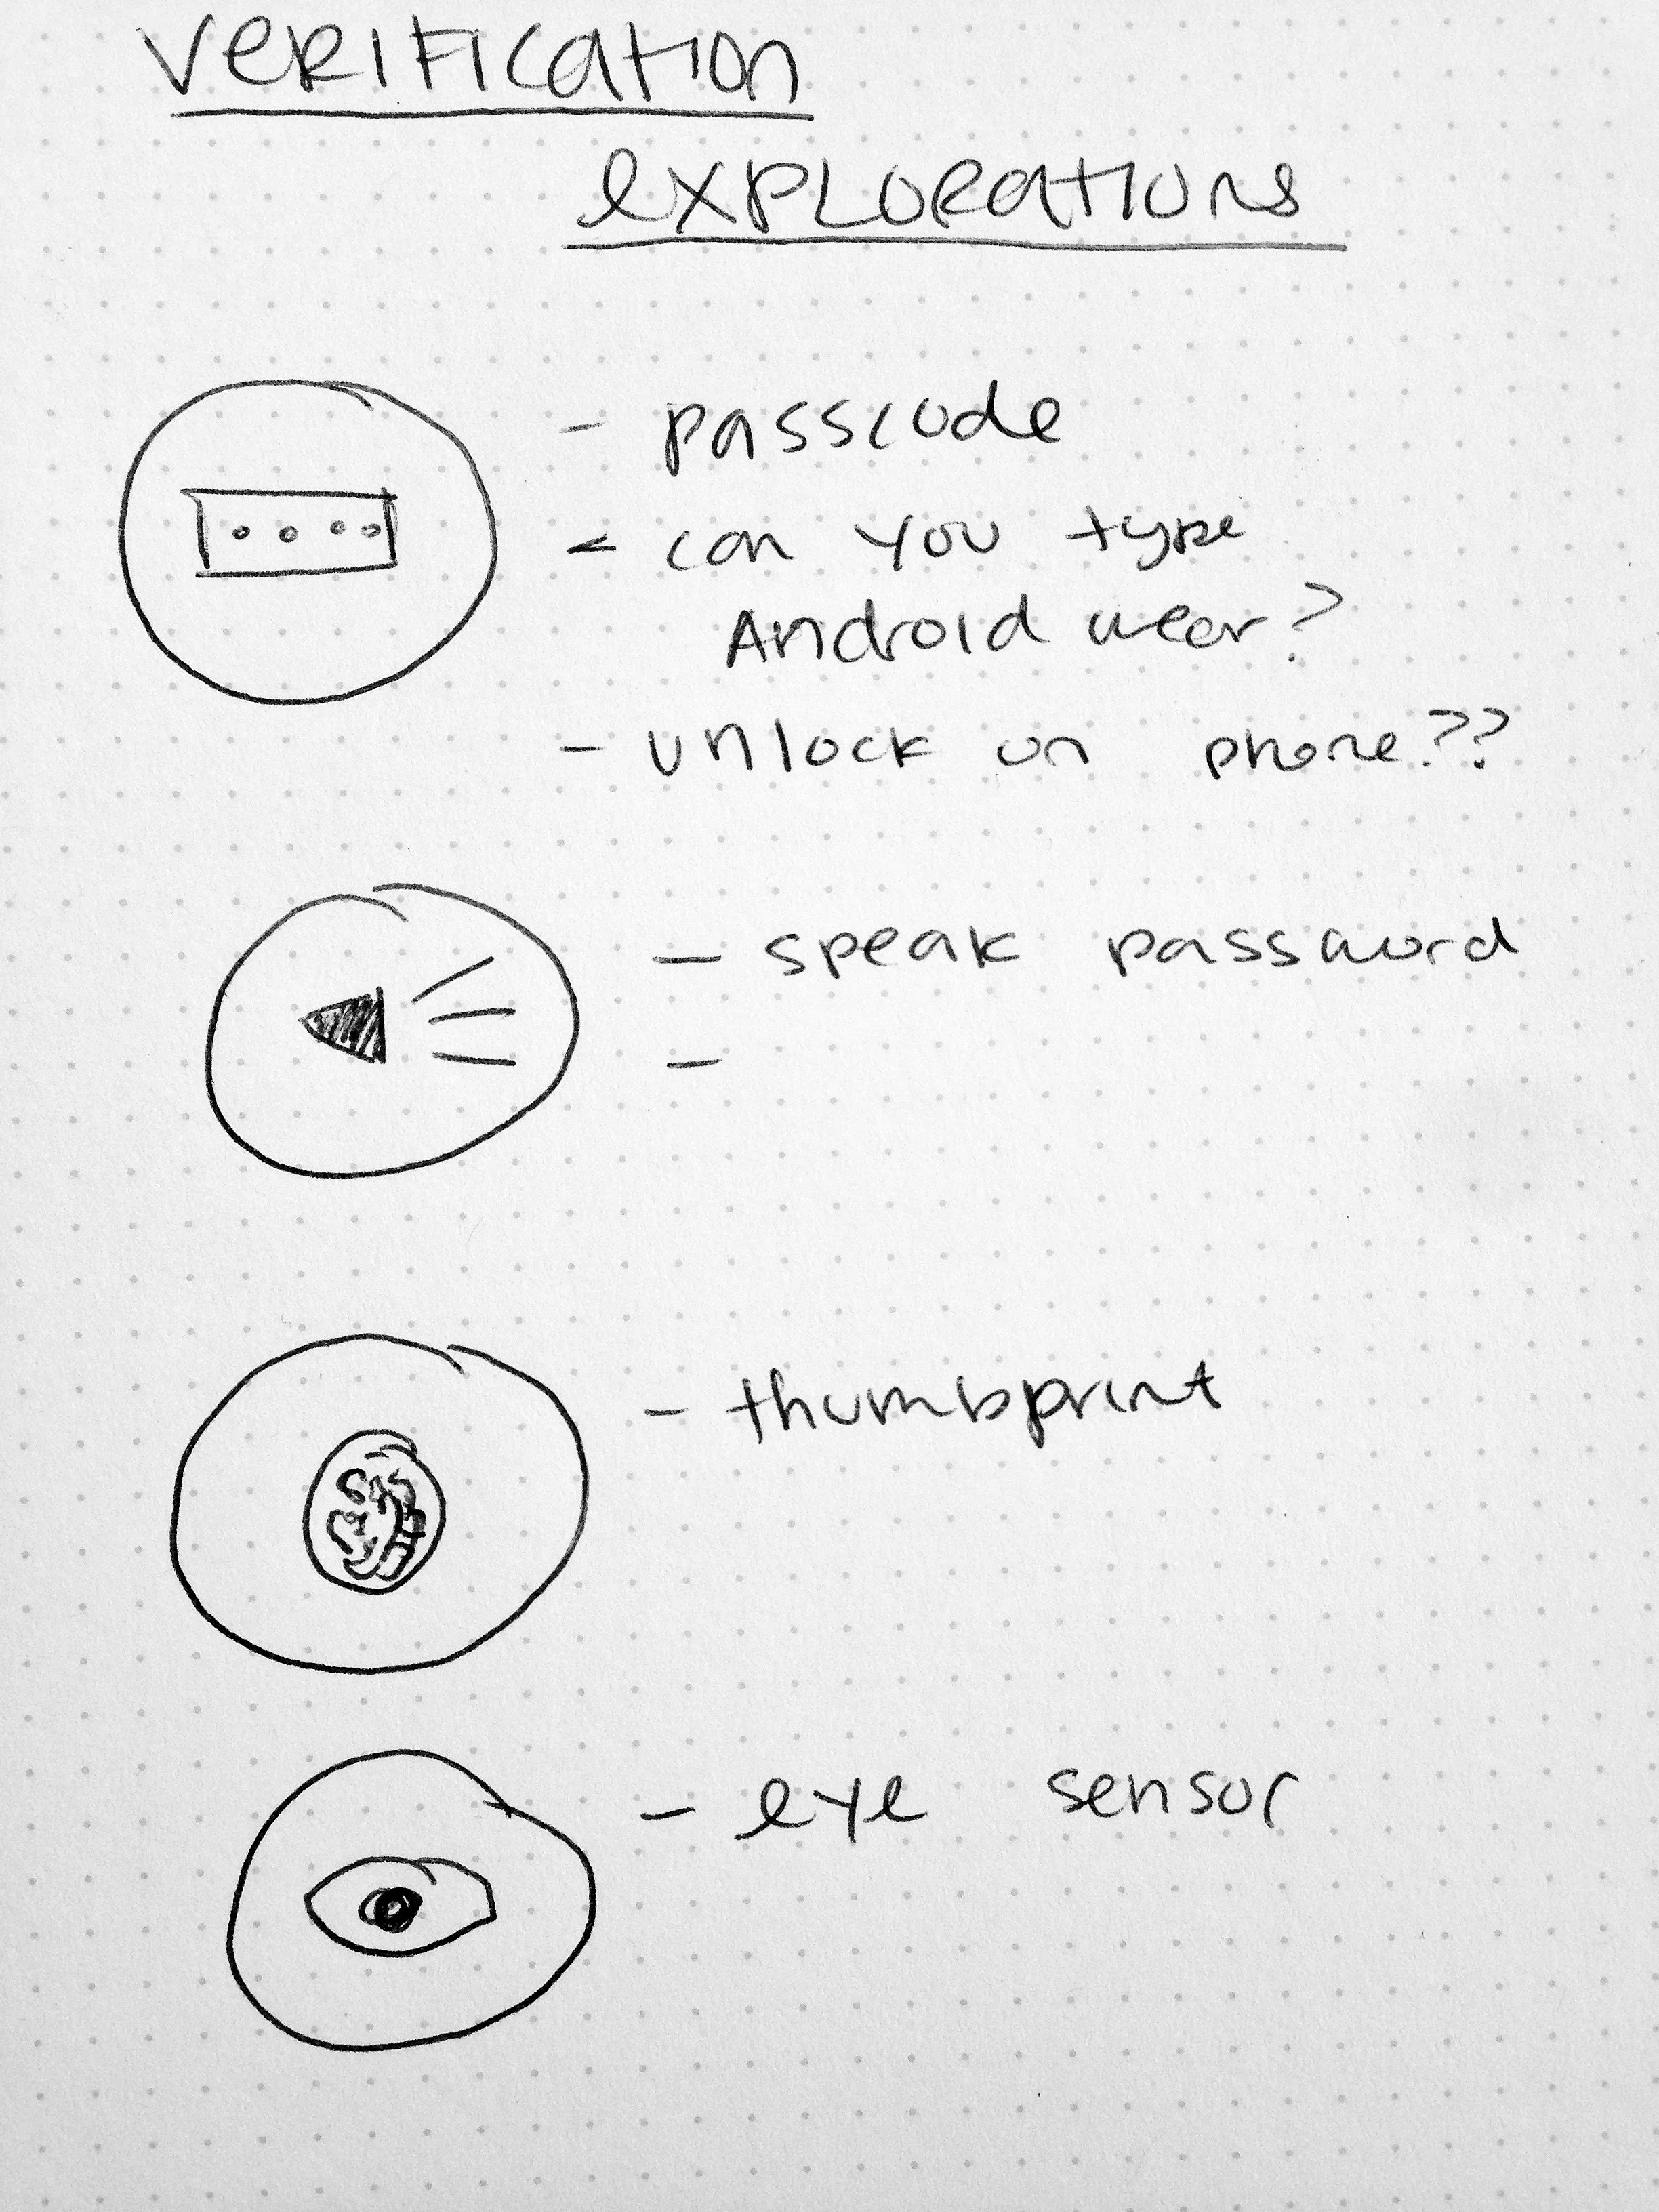 verification
explorations
- passcode
- can you type
Android wear?
- unlock on phone??
- speak password
-
- thumbprint
- eye sensor